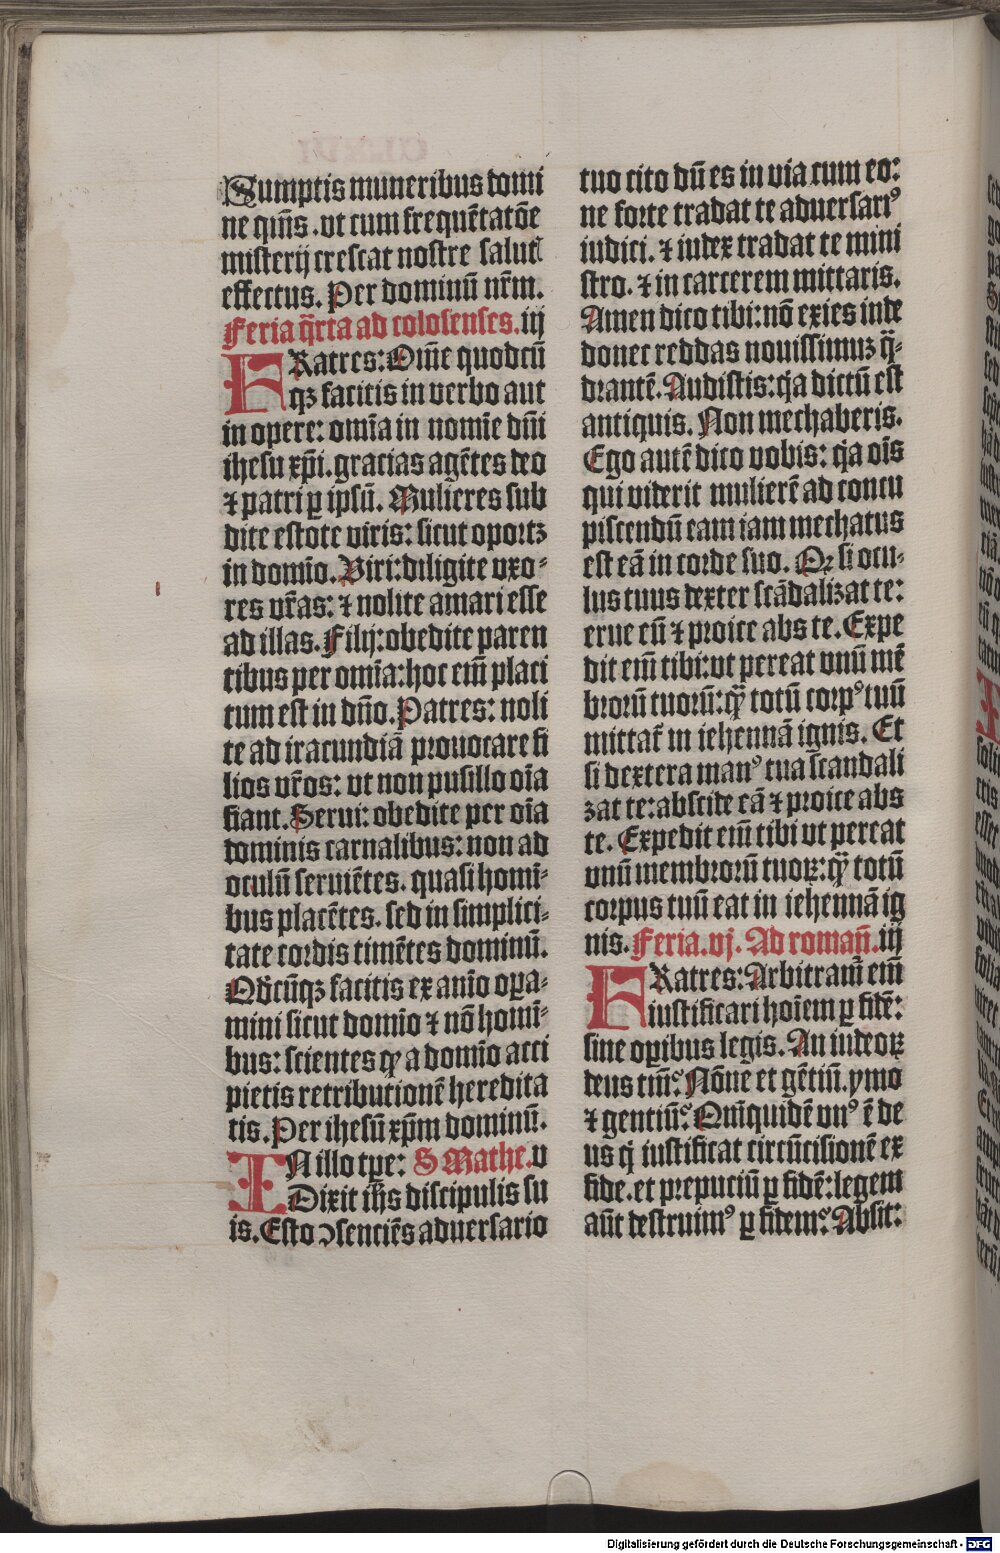 Sumptis muneribus domi
ne qm̄s .vt cum frequētatōe
misterij crescat nostre salutꝭ
effectus. Per dominū nr̄m.
Feria q̄rta ad colosenses.iij
FRatres: Om̄e quodcū
qꝫ facitis in verbo aut
in opere: omīa in nomīe dn̄i
ihesu xp̄i. gracias agētes deo
⁊ patri ꝑ ipsū. Mulieres sub
dite estote viris: sicut oportꝫ
in domīo. Viri: diligite vxo⸗
res vr̄as: ⁊ nolite amari esse
ad illas. Filij: obedite paren
tibus per omīa: hoc em̄ placi
tum est in dn̄o. Patres: noli
te ad iracundiā prouocare fi
lios vr̄os: vt non pusillo oīa
fiant. Serui: obedite per oīa
dominis carnalibus: non ad
oculū seruiētes. quasi homi⸗
bus placētes. sed in simplici⸗
tate cordis timētes dominū.
Qd̄cūqꝫ facitis ex anīo oꝑa⸗
mini sicut domīo ⁊ nō homī⸗
bus: scientes ꝙ a domīo acci
pietis retributionē heredita
tis. Per ihesū xp̄m dominū.
IN illo tꝑe: S Mathe.v
Dixit ih̄s discipulis su
is. Esto ↄsenciēs aduersario
tuo cito dū es in via cum eo:
ne forte tradat te aduersariꝰ
iudici. ⁊ iudex tradat te mini
stro. ⁊ in carcerem mittaris.
Amen dico tibi: nō exies inde
donec reddas nouissimuz q̄⸗
drantē. Audistis: q̄a dictū est
antiquis. Non mechaberis.
Ego autē dico vobis: q̄a oīs
qui viderit mulierē ad concu
piscendū eam iam mechatus
est eā in corde suo. Qꝛ si ocu⸗
lus tuus dexter scādalizat te:
erue eū ⁊ proice abs te. Expe
dit em̄ tibi: vt pereat vnū mē
brorū tuorū: ꝙ̄ totū corpꝰ tuū
mittat᷑ in iehennā ignis. Et
si dextera manꝰ tua scandali
zat te: abscide eā ⁊ proice abs
te. Expedit em̄ tibi vt pereat
vnū membrorū tuoꝝ: ꝙ̄ totū
corpus tuū eat in iehennā ig
nis. Feria.vj. Ad romān.iij
FRatres: Arbitram̄ em̄
iustificari hoīem ꝑ fidē:
sine oꝑibus legis. An iudeoꝝ
deus tm̄? Nōne et gētiū. ymo
⁊ gentiū? Qm̄quidē vnꝰ ē de
us q̄ iustificat circūcisionē ex
fide. et prepuciū ꝑ fidē: legem
aūt destruimꝰ ꝑ fidem? Absit:
Digitalisierung gefördert durch die Deutsche Forschungsgemeinschaft - DFG